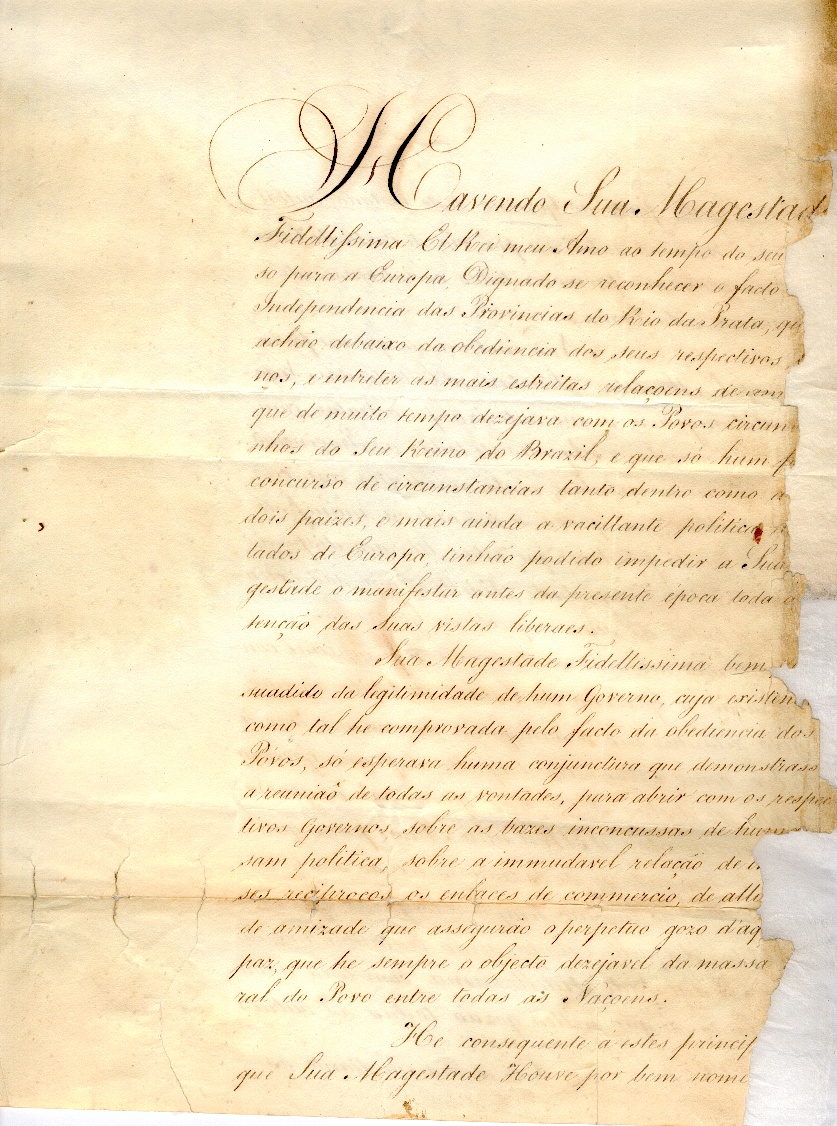 Havendo Sua Magestad
Fidellissima El Rei meu Amo ao tempo do seu
so para a Europa, Dignado se reconhecer o facto
Independencia das Provincias do Rio da Prata, qu
achão debaixo da obediencia dos seus respectivos
nos, e entreter as mais estreitas relaçoens de am
que de muito tempo dezejava com os Povos circum
nhos do Seu Reino do Brazil, e que só hum p
concurso de circunstancias tanto dentro como
dois paizes, e mais ainda a vacillante politica
tados de Europa, tinhão podido impedir a Sua
gestade o manifestar antes da presente epoca toda
tenção das Suas vistas liberaes.
Sua Magestade Fidellissima bem
suadido da legitimidade de hum Governo, cuja existen
como tal he comprovada pelo facto da obediencia dos
Povos, só esperava huma conjunctura que demonstrass
a reuniaõ de todas as vontades, para abrir com os respec
tivos Governos, sobre as bazes inconcussas de huma
sam politica, sobre a immudavel relação de i
ses reciprocos, os enlaces de commercio, de alli
de amizade que assegurão o perpetuo gozo d'aq
paz, que he sempre o objecto dezejavel da massa
ral do Povo entre todas as Naçoens.
He consequente a estes princip
que Sua Magestade Houve por bem nome